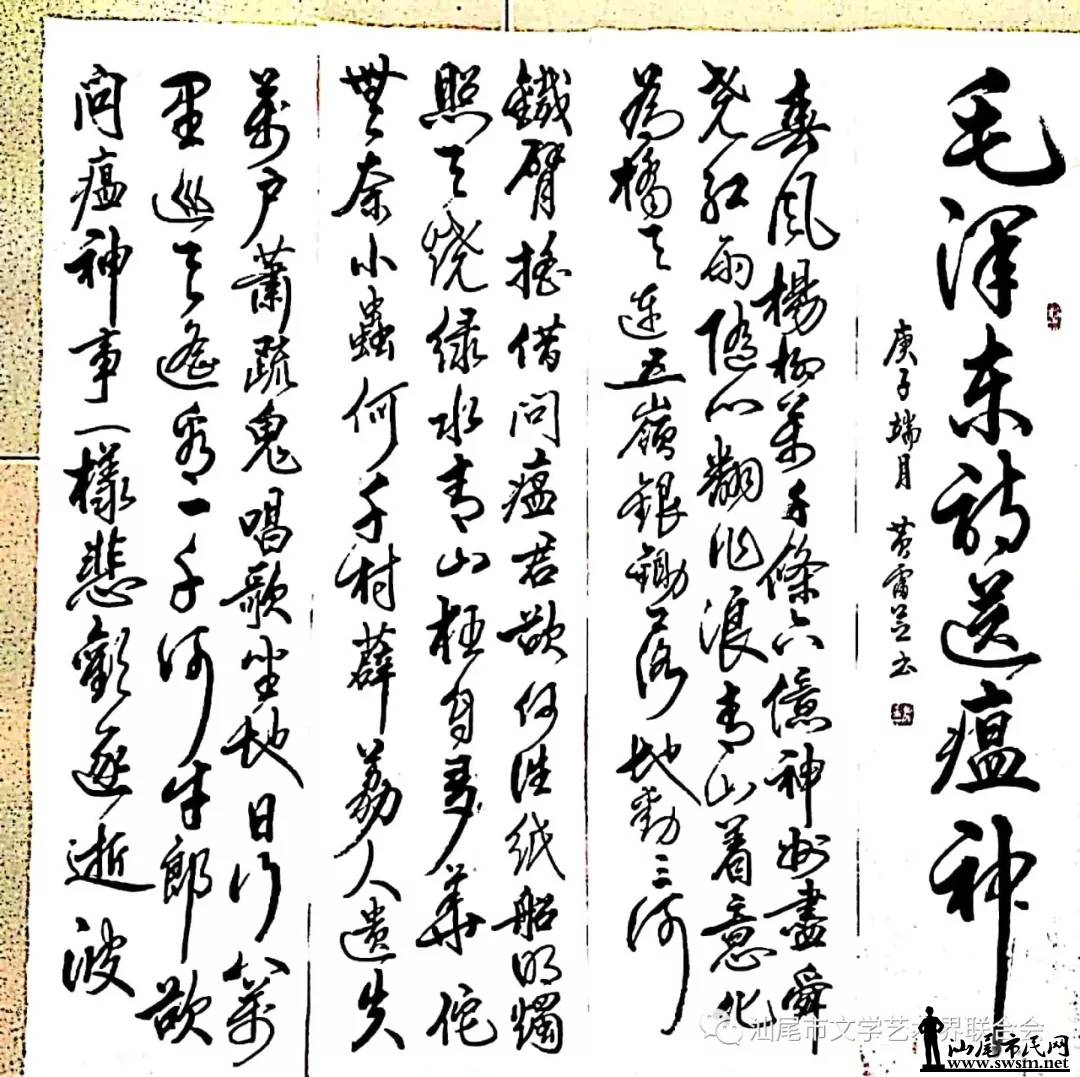 毛泽东诗送瘟神
庚子端月 黄雷书
春风楊柳萬千條六億神州盡舜
尧红雨随心翻作浪青山着意化
為橋天连五嶺銀鋤落地動三河
鐵臂摇借问瘟君欲何往纸船明燭
照天烧绿水青山枉自多華佗
無奈小蟲何千村薜荔人遗失
萬户蕭疏鬼唱歌坐地日行八萬
里巡天遥看一千河牛郎欲
问瘟神事一樣悲歡逐逝波
汕尾市文学艺术界联合会
汕尾市民网
www.swsm.net